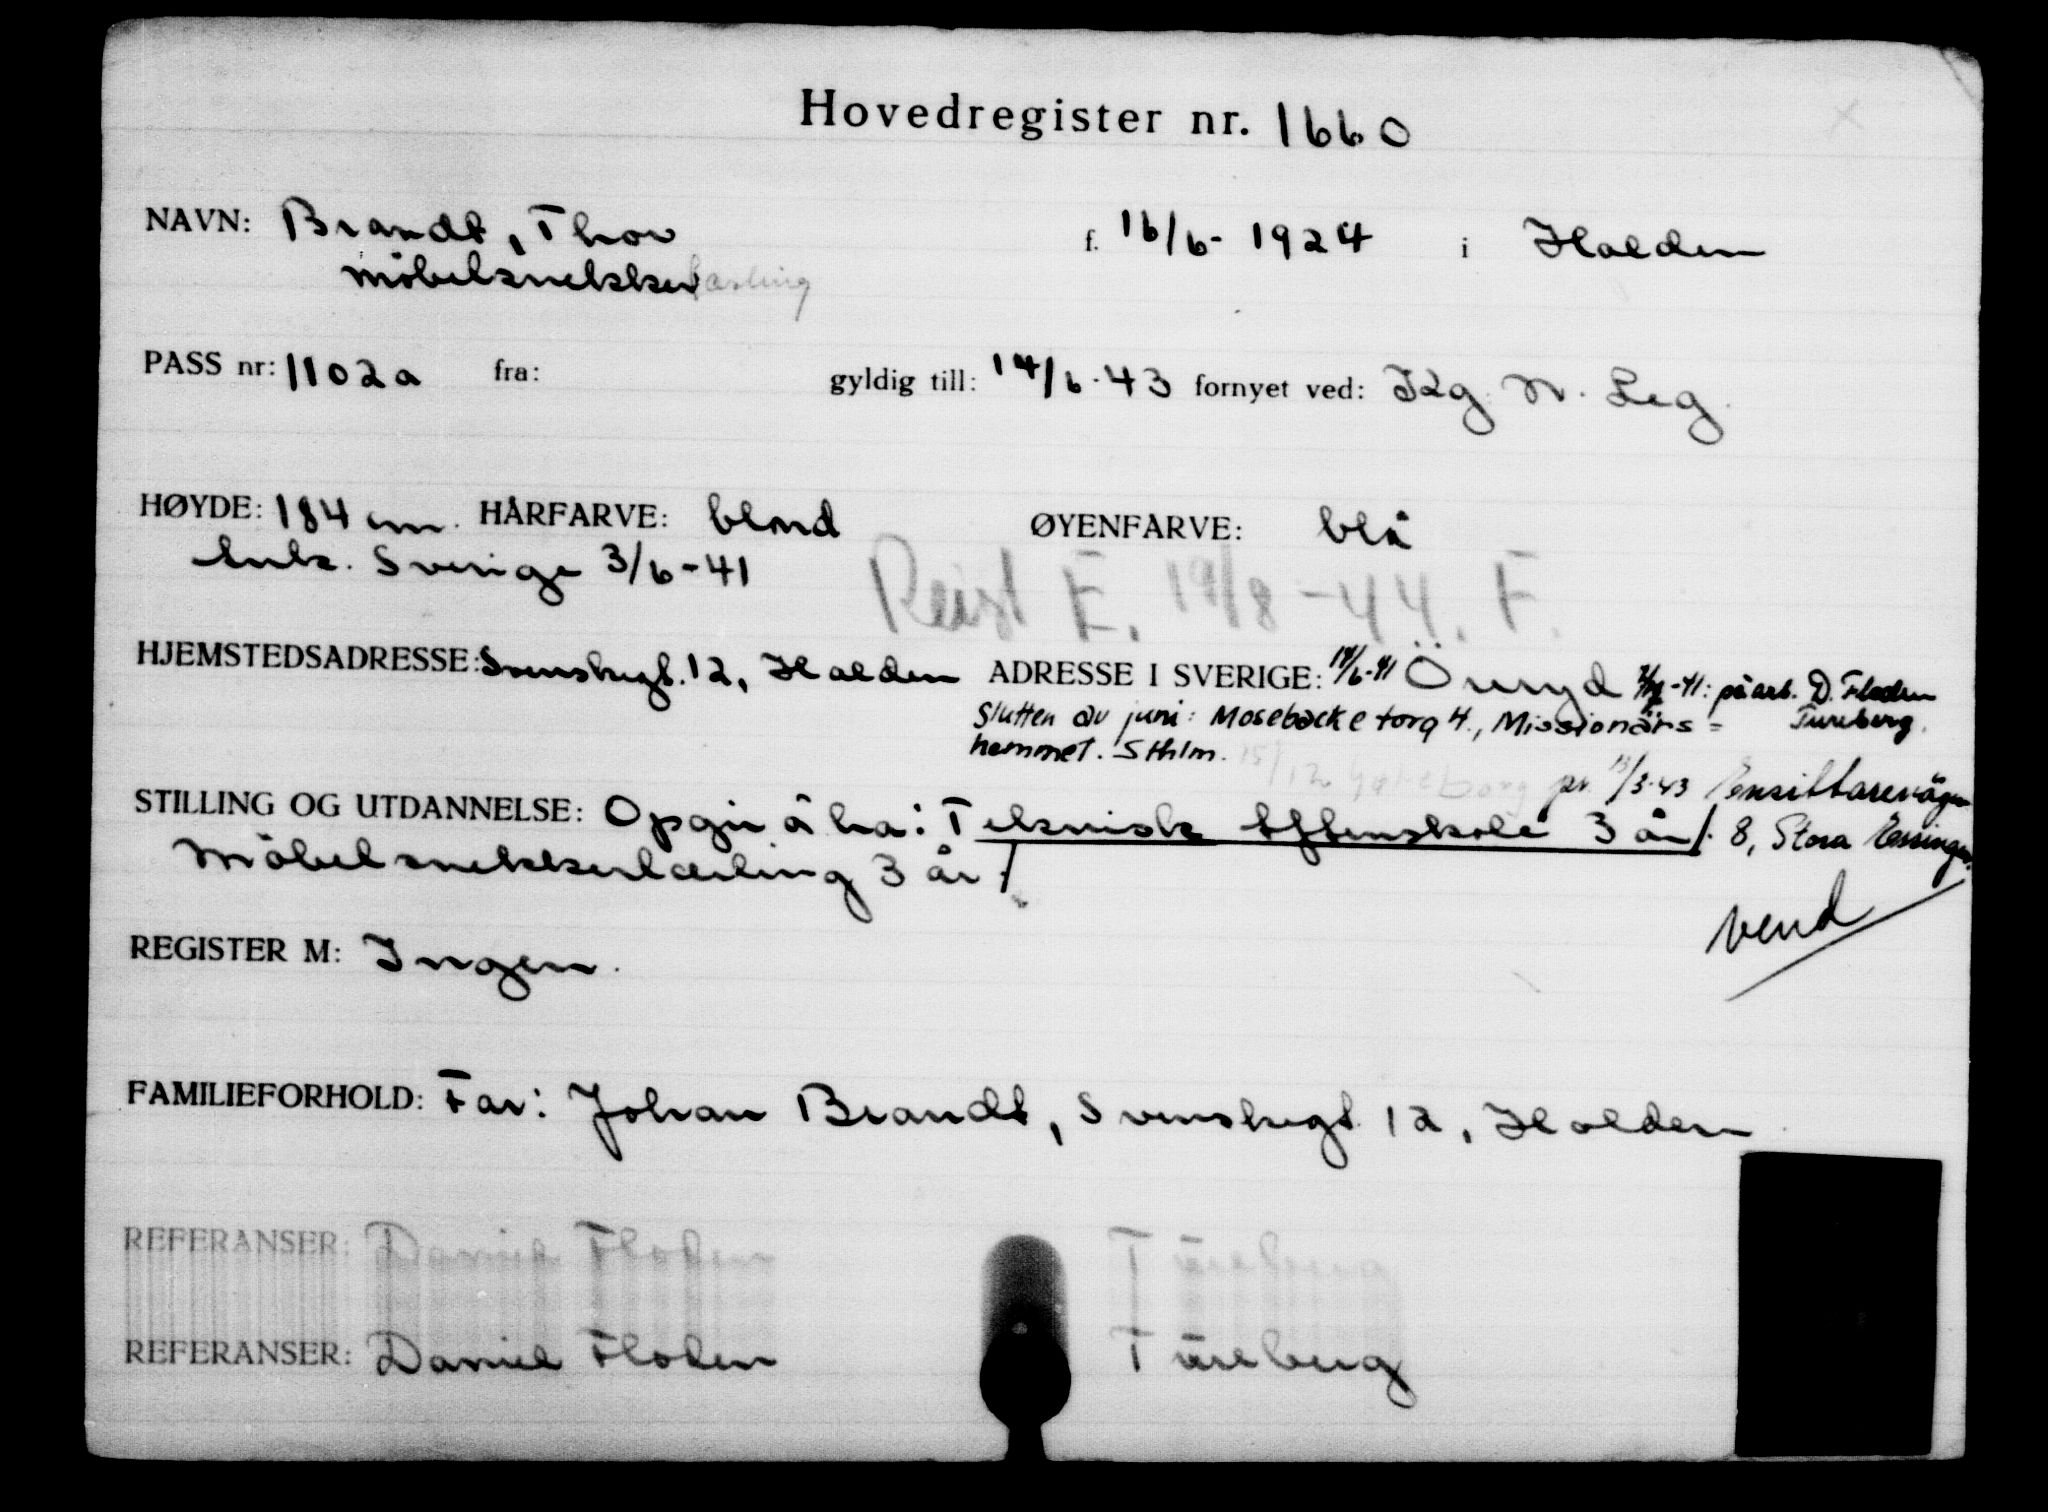 Hovedregister nr. 1660
NAVN: Brandt, Thor f. 16/6- 1924 i Halden
Möbelsnekker lærling
PASS nr: 1102a fra: gyldig till: 14/6-43 fornyet ved: Kg. N. Leg.
HØYDE: 184 cm. HÅRFARVE: blond ØYENFARVE: blå
Ank. Sverige 3/6-41
Reist E. 19/8-44. F.
HJEMSTEDSADRESSE: Svenskegt. 12, Halden ADRESSE I SVERIGE: 14/6-41 Öreryd -41: på arb. D. Floden
Slutten av juni: Mosebacke torg 4., Missionärs= Tureberg.
hemmet. Sthlm. 15/12 Gøteborg pr. 13/3-43 Pensittarevägen
STILLING OG UTDANNELSE: Opgir å ha: Teknisk Aftenskole 3 år/. 8, Stora Essingen.
Möbelsnekkerlærling 3 år./
vend
REGISTER M: Ingen.
FAMILIEFORHOLD: Far: Johan Brandt, Svenskegt. 12, Halden
REFERANSER: Daniel Floden Türeberg
REFERANSER: Daniel Floden Türeberg